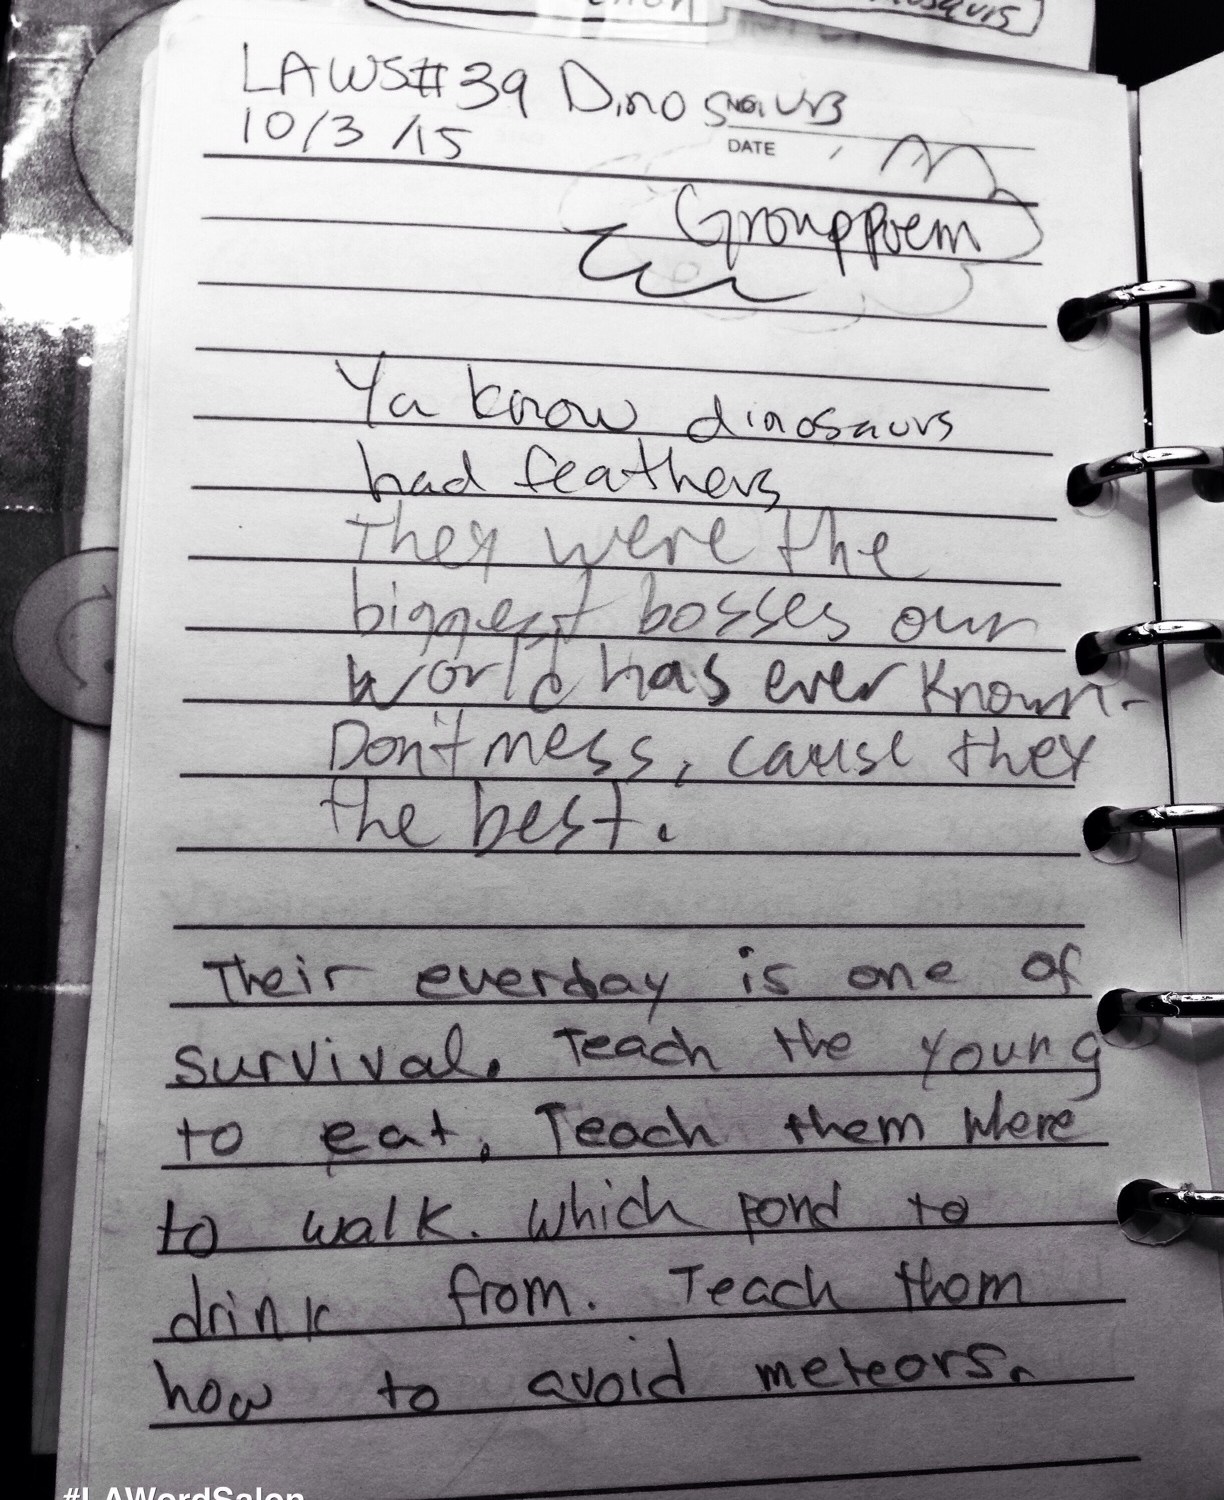 LAWS#39 Dinosaurs
No.
10/3/15
DATE
Group poem
Ya know dinosaurs
had feathers
They were the
biggest bosses our
world has ever known-
Don't mess, cause they
the best.
Their everday is one of
survival. Teach the young
to eat. Teach them where
to walk. Which pond to
drink from. Teach them
how to avoid meteors.
#LAWordSalon